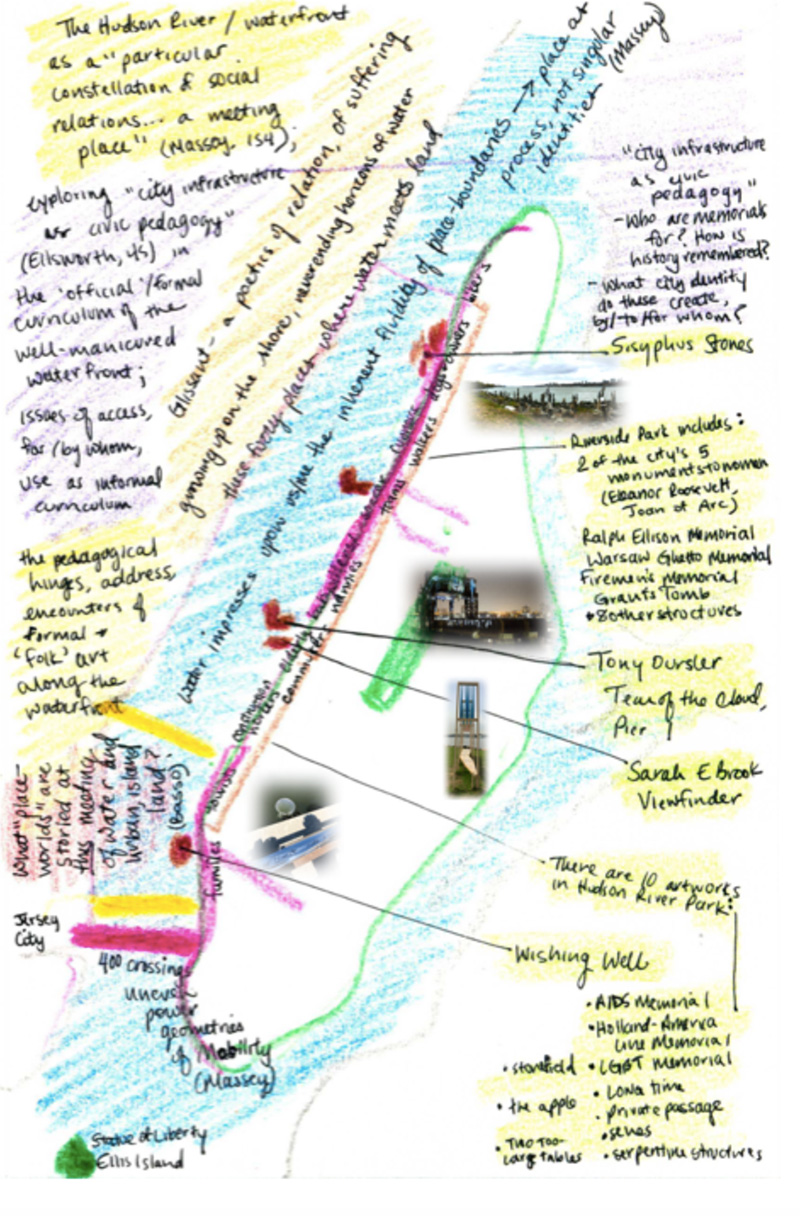 The Hudson River / waterfront
as a "particular
constellation of social
relations... a meeting
place" (Massey, 154);
exploring "city infrastructure
as civic pedagogy"
(Ellsworth, 45) in
the 'official'/formal
curriculum of the
well-manicured
waterfront;
issues of access,
for/by whom,
use as informal
curriculum
the pedagogical
hinges, address,
encounters of
formal +
'folk' art
along the
waterfront
What "place-
worlds" are
storied at
this meeting
of water and
urban island
land?
(Basso)
Glissant - a poetics of relation, of suffering
growing up on the shore, neverending horizons of water
these places where water meets land
water impresses upon us/me the inherent fluidity of place-boundaries → place as
process, not singular
identities (Massey)
"city infrastructure
as civic
pedagogy"
- who are memorials
for? How is
history remembered?
- what city identity
do these create,
by/to/for whom?
Sisyphus Stones
Riverside Park includes:
2 of the city's 5
monuments to women
(Eleanor Roosevelt,
Joan of Arc)
Ralph Ellison Memorial
Warsaw Ghetto Memorial
Firemen's Memorial
Grants Tomb
+ 8 other structures
Tony Oursler
Tear of the Cloud,
Pier
Sarah E Brook
Viewfinder
There are 10 artworks
in Hudson River Park:
Wishing Well
• AIDS Memorial
• Holland-America
Line Memorial
• LGBT Memorial
• Long time
• private passage
• senes
• serpentine structures
• stonefield
• the apple
• Two Too-
Large Tables
bikers
dog walkers
walkers
nannies
commuters
tourists
families
Jersey
City
400 crossings
uneven
power
geometries
of Mobility
(Massey)
Statue of Liberty
Ellis Island